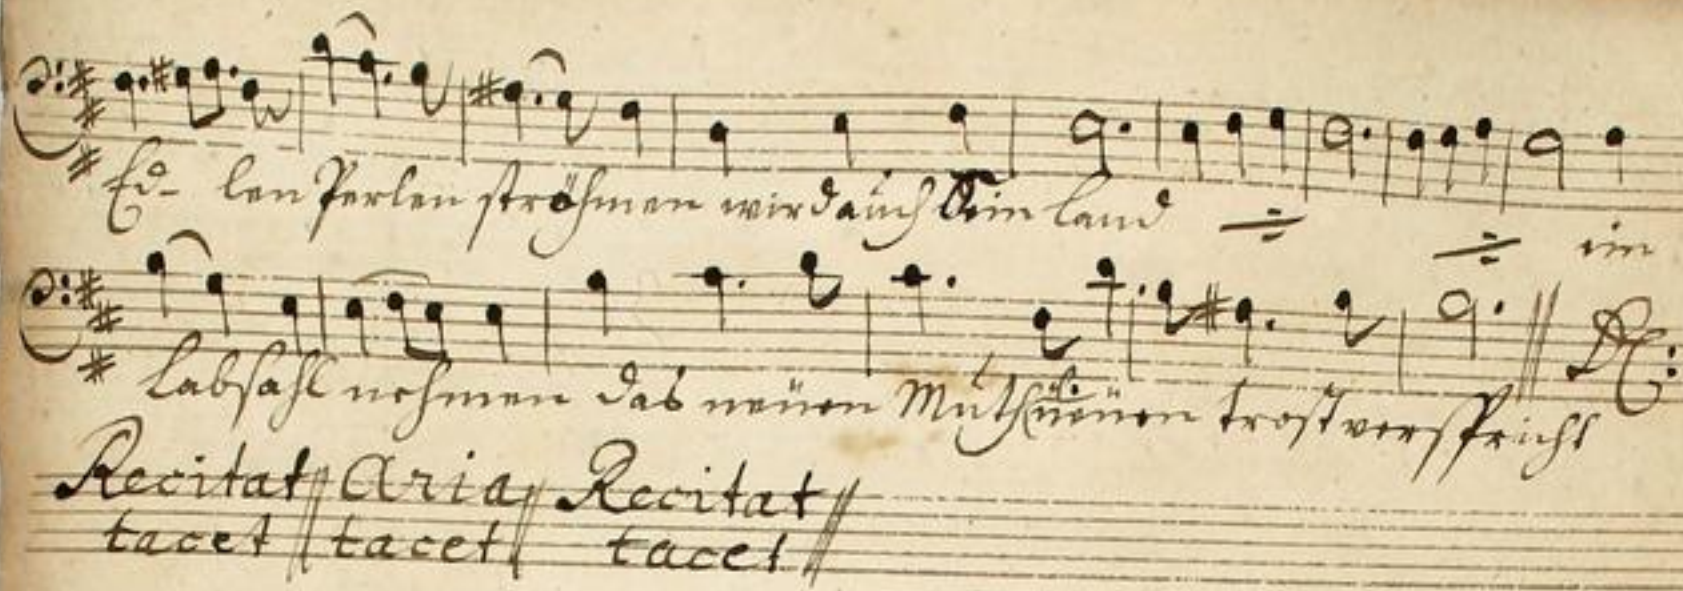 Ed- len Perlen ströhmen wird auch Dein land ein
labsahl nehmen das neüen Muth neüen trost verspricht DC:
Recitat Aria Recitat
tacet tacet tacet